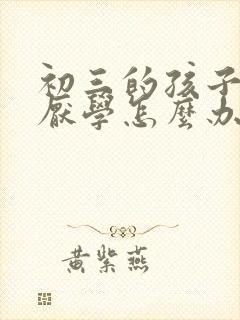 初三的孩子
厭學怎麼办
黄紫燕